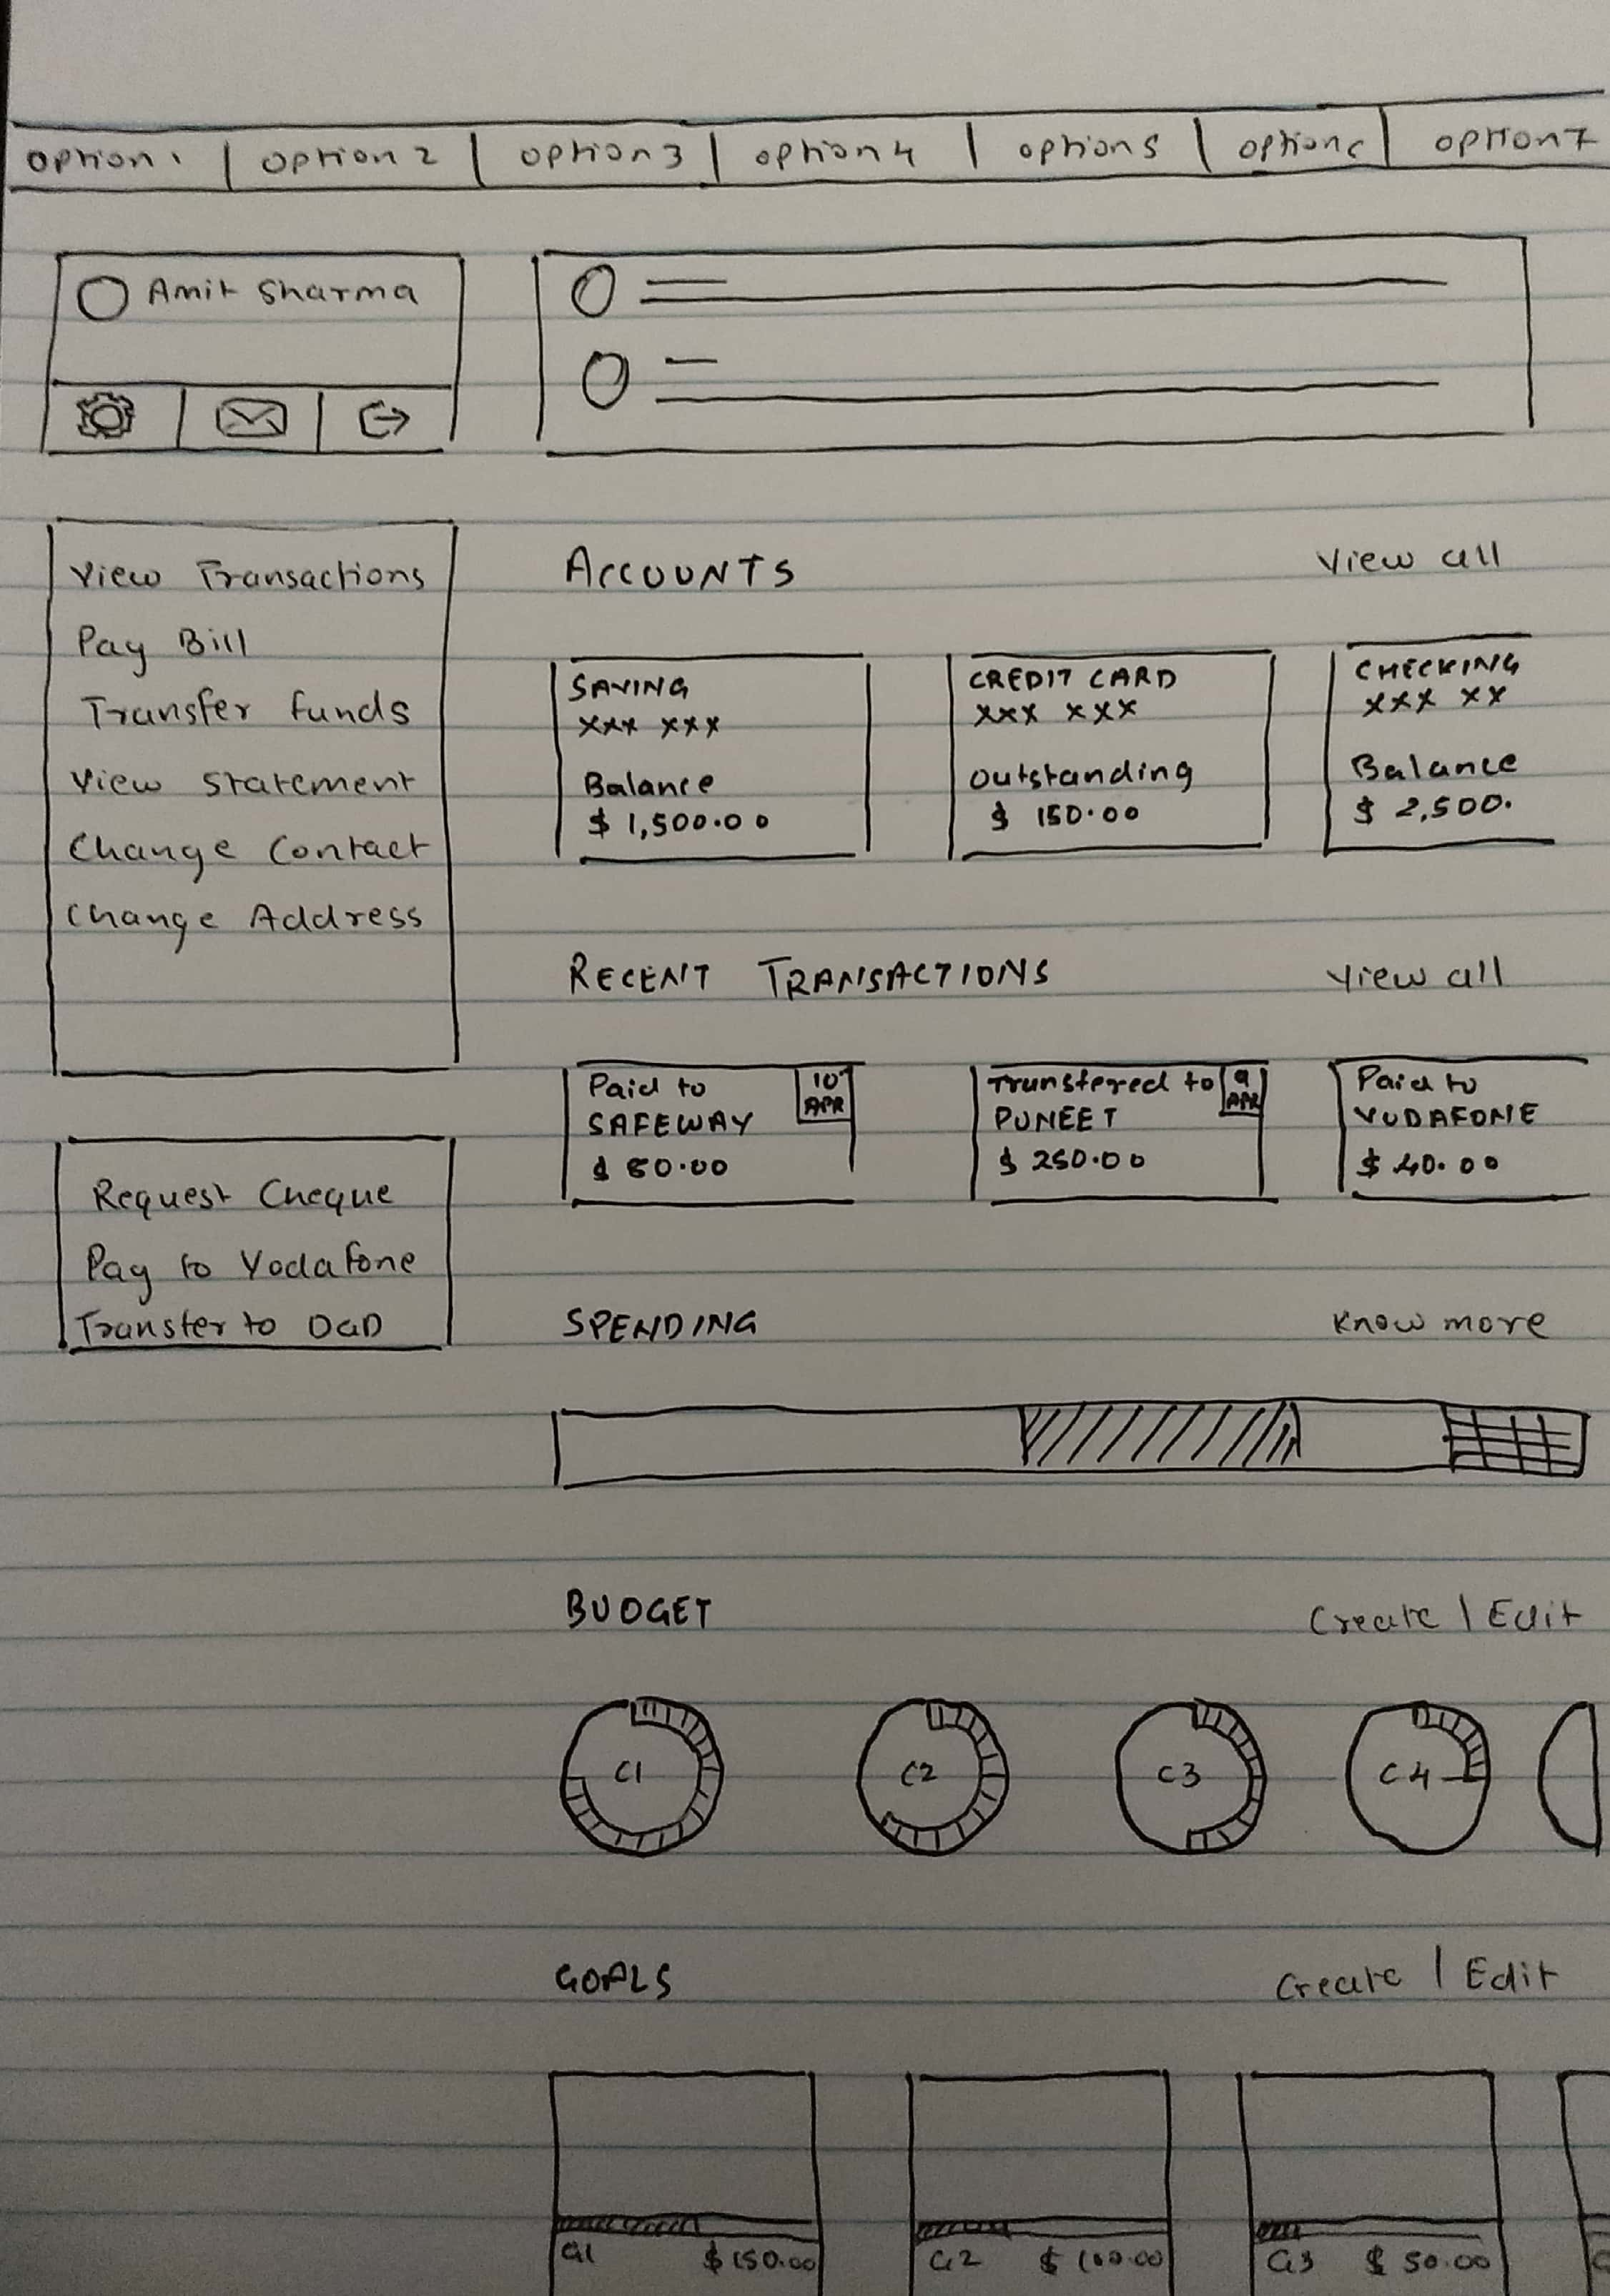 option 1 | option 2 | option 3 | option 4 | option 5 | option 6 | option 7
Amit Sharma
View Transactions
Pay Bill
Transfer funds
View Statement
Change Contact
Change Address
Request Cheque
Pay to Vodafone
Transfer to DaD
ACCOUNTS
View all
SAVING
xxx xxx
Balance
$ 1,500.00
CREDIT CARD
xxx xxx
Outstanding
$ 150.00
CHECKING
xxx xx
Balance
$ 2,500.
RECENT TRANSACTIONS
View all
Paid to
SAFEWAY
$ 80.00
10
APR
Transfered to
PUNEET
$ 250.00
9
APR
Paid to
VODAFONE
$ 40.00
SPENDING
Know more
BUDGET
Create | Edit
C1
C2
C3
C4
GOALS
Create | Edit
G1 $ 150.00
G2 $ 100.00
G3 $ 50.00